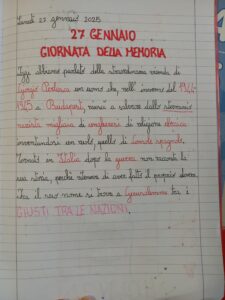 Lunedì 27 gennaio 2025
27 GENNAIO
GIORNATA DELLA MEMORIA
Oggi abbiamo parlato della straordinaria vicenda di
Giorgio Perlasca un uomo che, nell' inverno del 1944-
1945 a Budapest, riuscì a salvare dallo sterminio
nazista migliaia di ungheresi di religione ebraica
inventandosi un ruolo, quello di console spagnolo.
Tornato in Italia dopo la guerra non raccontò la
sua storia, perché riteneva di aver fatto il proprio dovere.
Ora il suo nome si trova a Gerusalemme tra i
GIUSTI TRA LE NAZIONI.